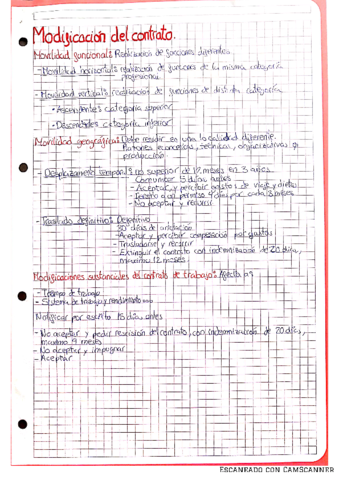 Modificación del contrato.
Movilidad funcional: Realización de funciones diferentes.
- Movilidad horizontal: realización de funciones de la misma categoría
profesional
- Movilidad vertical: realización de funciones de distinta categoría
• Ascendentes: categoría superior
• Descendentes: categoría inferior
Movilidad geográfica: Debe residir en una localidad diferente.
Razones económicas, técnicas, organizativas o
producción.
- Desplazamiento temporal: no superior de 12 meses en 3 años.
- Comunicar 5 días antes
- Aceptar y percibir gastos de viaje y dieta
- Tendrá que permiso 4 días por cada 3 meses
- No aceptar y recurrir
- Traslado definitivo: Definitivo
30 días de antelación
- Aceptar y percibir compensación por gastos
- Trasladarse y recurrir
- Extinguir el contrato con indemnización de 20 días,
máximo 12 meses
Modificaciones sustanciales del contrato de trabajo: Afecta a:
- Tiempo de trabajo
- Sistema de trabajo y rendimiento
Notificar por escrito 15 días antes
- No aceptar y pedir rescisión del contrato, con indemnización de 20 días,
máximo 9 meses
- No aceptar y impugnar
- Aceptar
ESCANEADO CON CAMSCANNER